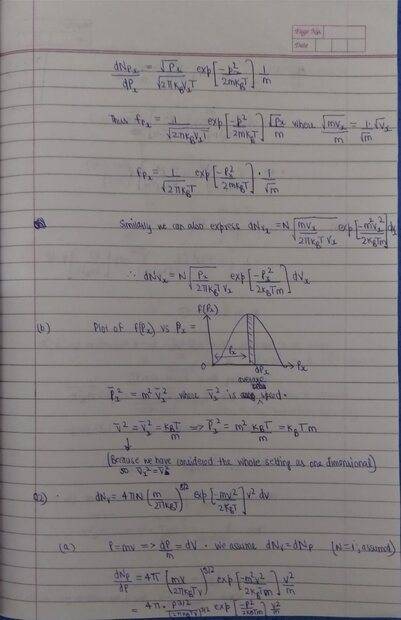 Page No.
Date
dN_Px / dP_x = √P_x / √(2πk_BV_xT) exp[-p²/2mk_BT] 1/m
Thus f_Px = 1/√(2πk_BV_xT) exp[-p²/2mk_BT] √P_x/m where √(mv_x)/m = 1/√m · √v_x
f_Px = 1/√(2πk_BT) exp[-P_x²/2mk_BT] · 1/√m
Similarly we can also express dN_vx = N √(mv_x/2πk_BT v_x) exp[-m²v_x²/2k_BTm] dv_x
∴ dN_vx = N √(P_x/2πk_BT v_x) exp[-P_x²/2k_BTm] dV_x
(b) Plot of f(P_x) vs P_x =
f(P_x)
P_x
0 dP_x P_x
average
P̄_x² = m² v̄_x² where v̄_x² is speed.
v̄² = v̄_x² = k_BT/m => P̄_x² = m² k_BT/m = k_BTm
(Because we have considered the whole setting as one dimensional)
so v̄_x² = v̄²
Q2) dN_v = 4πN (m/2πk_BT)^3/2 exp[-mv²/2k_BT] v² dv
(a) P = mv => dP/m = dV . we assume dN_v = dN_p (N=1, assumed)
dN_p/dP = 4π (mv/2πk_BTv)^3/2 exp[-m²v²/2k_BTm] v²/m
= 4π · P^3/2/(2πk_BTv)^3/2 exp[-P²/2k_BTm] v²/m